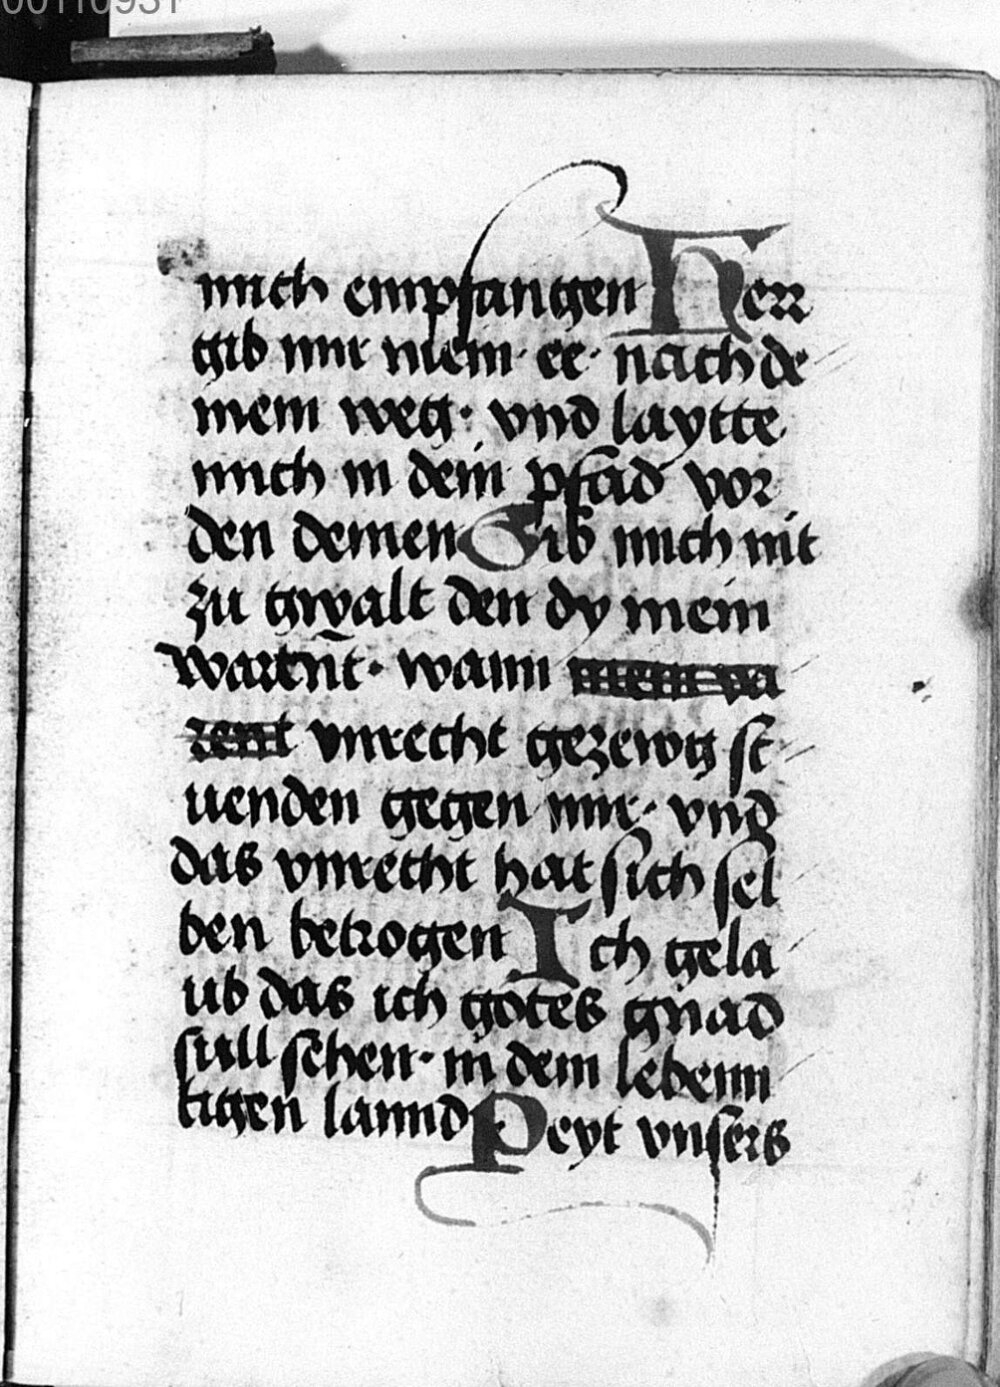 mich empfangen Herr
gib mir mein · ee · nach de
mem weg · vnd laytte
mich in dein pfad vor
den deinen Gib mich nit
zu gwalt den dy mein
wartn̄t · wann mein va
rent vnrecht gezewg st
uenden gegen mir · vnd
das vnrecht hat sich sel
ben betrogen Ich gela
ub das ich gotes gnad
sull sehen · in dem lebenn
tigen lannd Peyt vnsers